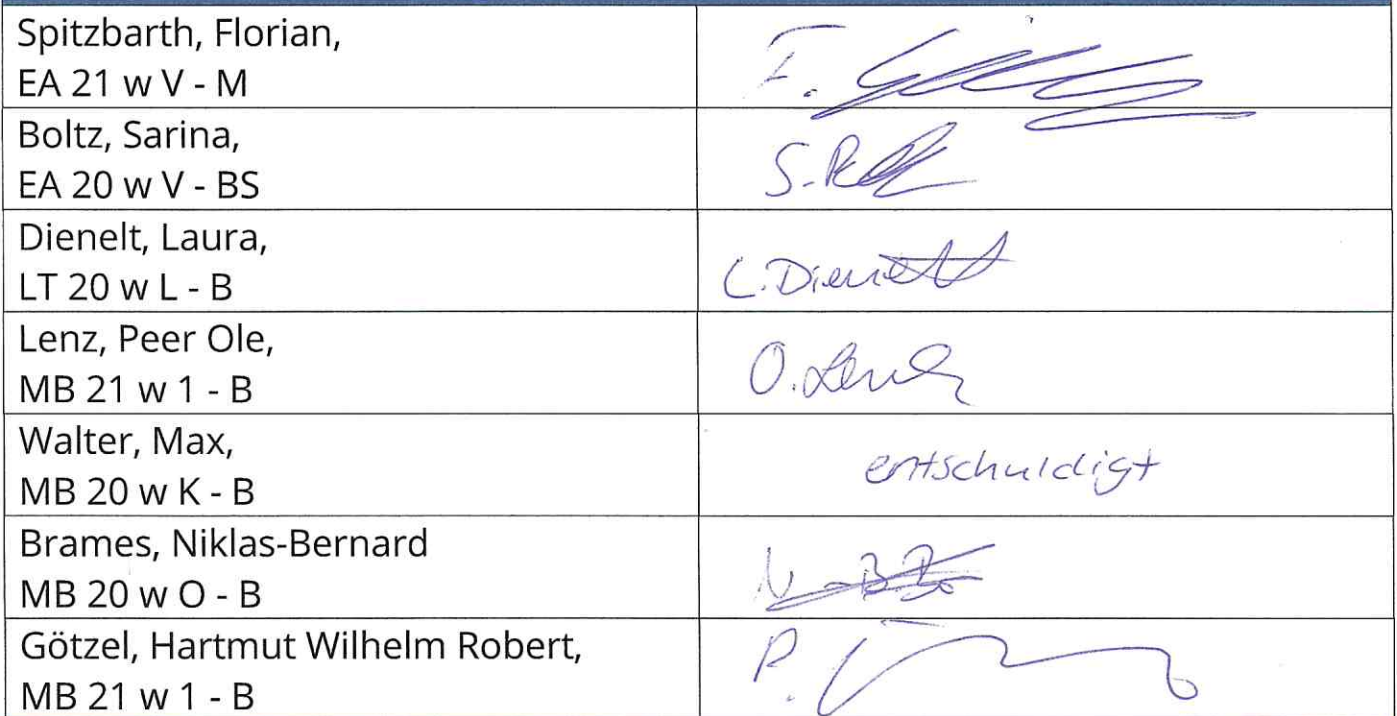 Spitzbarth, Florian,
EA 21 w V - M
F.
Boltz, Sarina,
EA 20 w V - BS
S.
Dienelt, Laura,
LT 20 w L - B
L. Dienelt
Lenz, Peer Ole,
MB 21 w 1 - B
O. Lenz
Walter, Max,
MB 20 w K - B
entschuldigt
Brames, Niklas-Bernard
MB 20 w O - B
Götzel, Hartmut Wilhelm Robert,
MB 21 w 1 - B